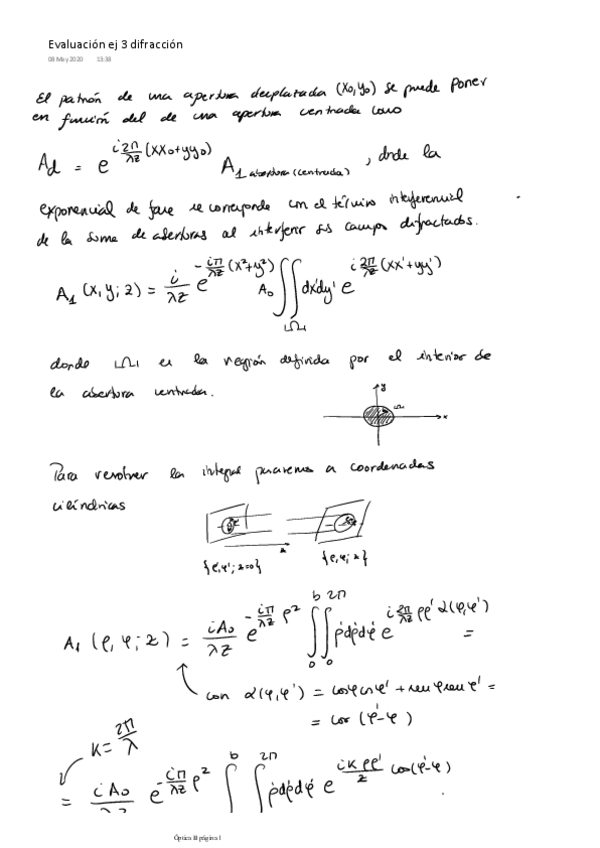 Evaluación ej 3 difracción
08 May 2020 13:38
El patrón de una apertura desplazada (x₀,y₀) se puede poner
en función del de una apertura centrada como
A_d = e^{i 2π/λz (xx₀+yy₀)} A_{1 abertura (centrada)} , donde la
exponencial de fase se corresponde con el término interferencial
de la suma de aberturas al interferir sus campos difractados.
A₁ (x, y; z) = i/λz e^{-iπ/λz (x²+y²)} A₀ ∬_{Ω₁} dx'dy' e^{i 2π/λz (xx'+yy')}
donde Ω₁ es la región definida por el interior de
la abertura centrada.
y
x
Para resolver la integral pasaremos a coordenadas
cilíndricas
z
{ρ',φ'; z=0} {ρ,φ; z}
A₁ (ρ, φ; z) = iA₀/λz e^{-iπ/λz ρ²} ∫₀^b ∫₀^{2π} ρ'dρ'dφ' e^{i 2π/λz ρρ' α(φ,φ')} =
con α(φ,φ') = cosφcosφ' + senφsenφ' =
= cos (φ'-φ)
K = 2π/λ
= iA₀/λz e^{-iπ/λz ρ²} ∫^b ∫^{2π} ρ'dρ'dφ' e^{iKρρ'/z cos(φ'-φ)}
Óptica III página 1